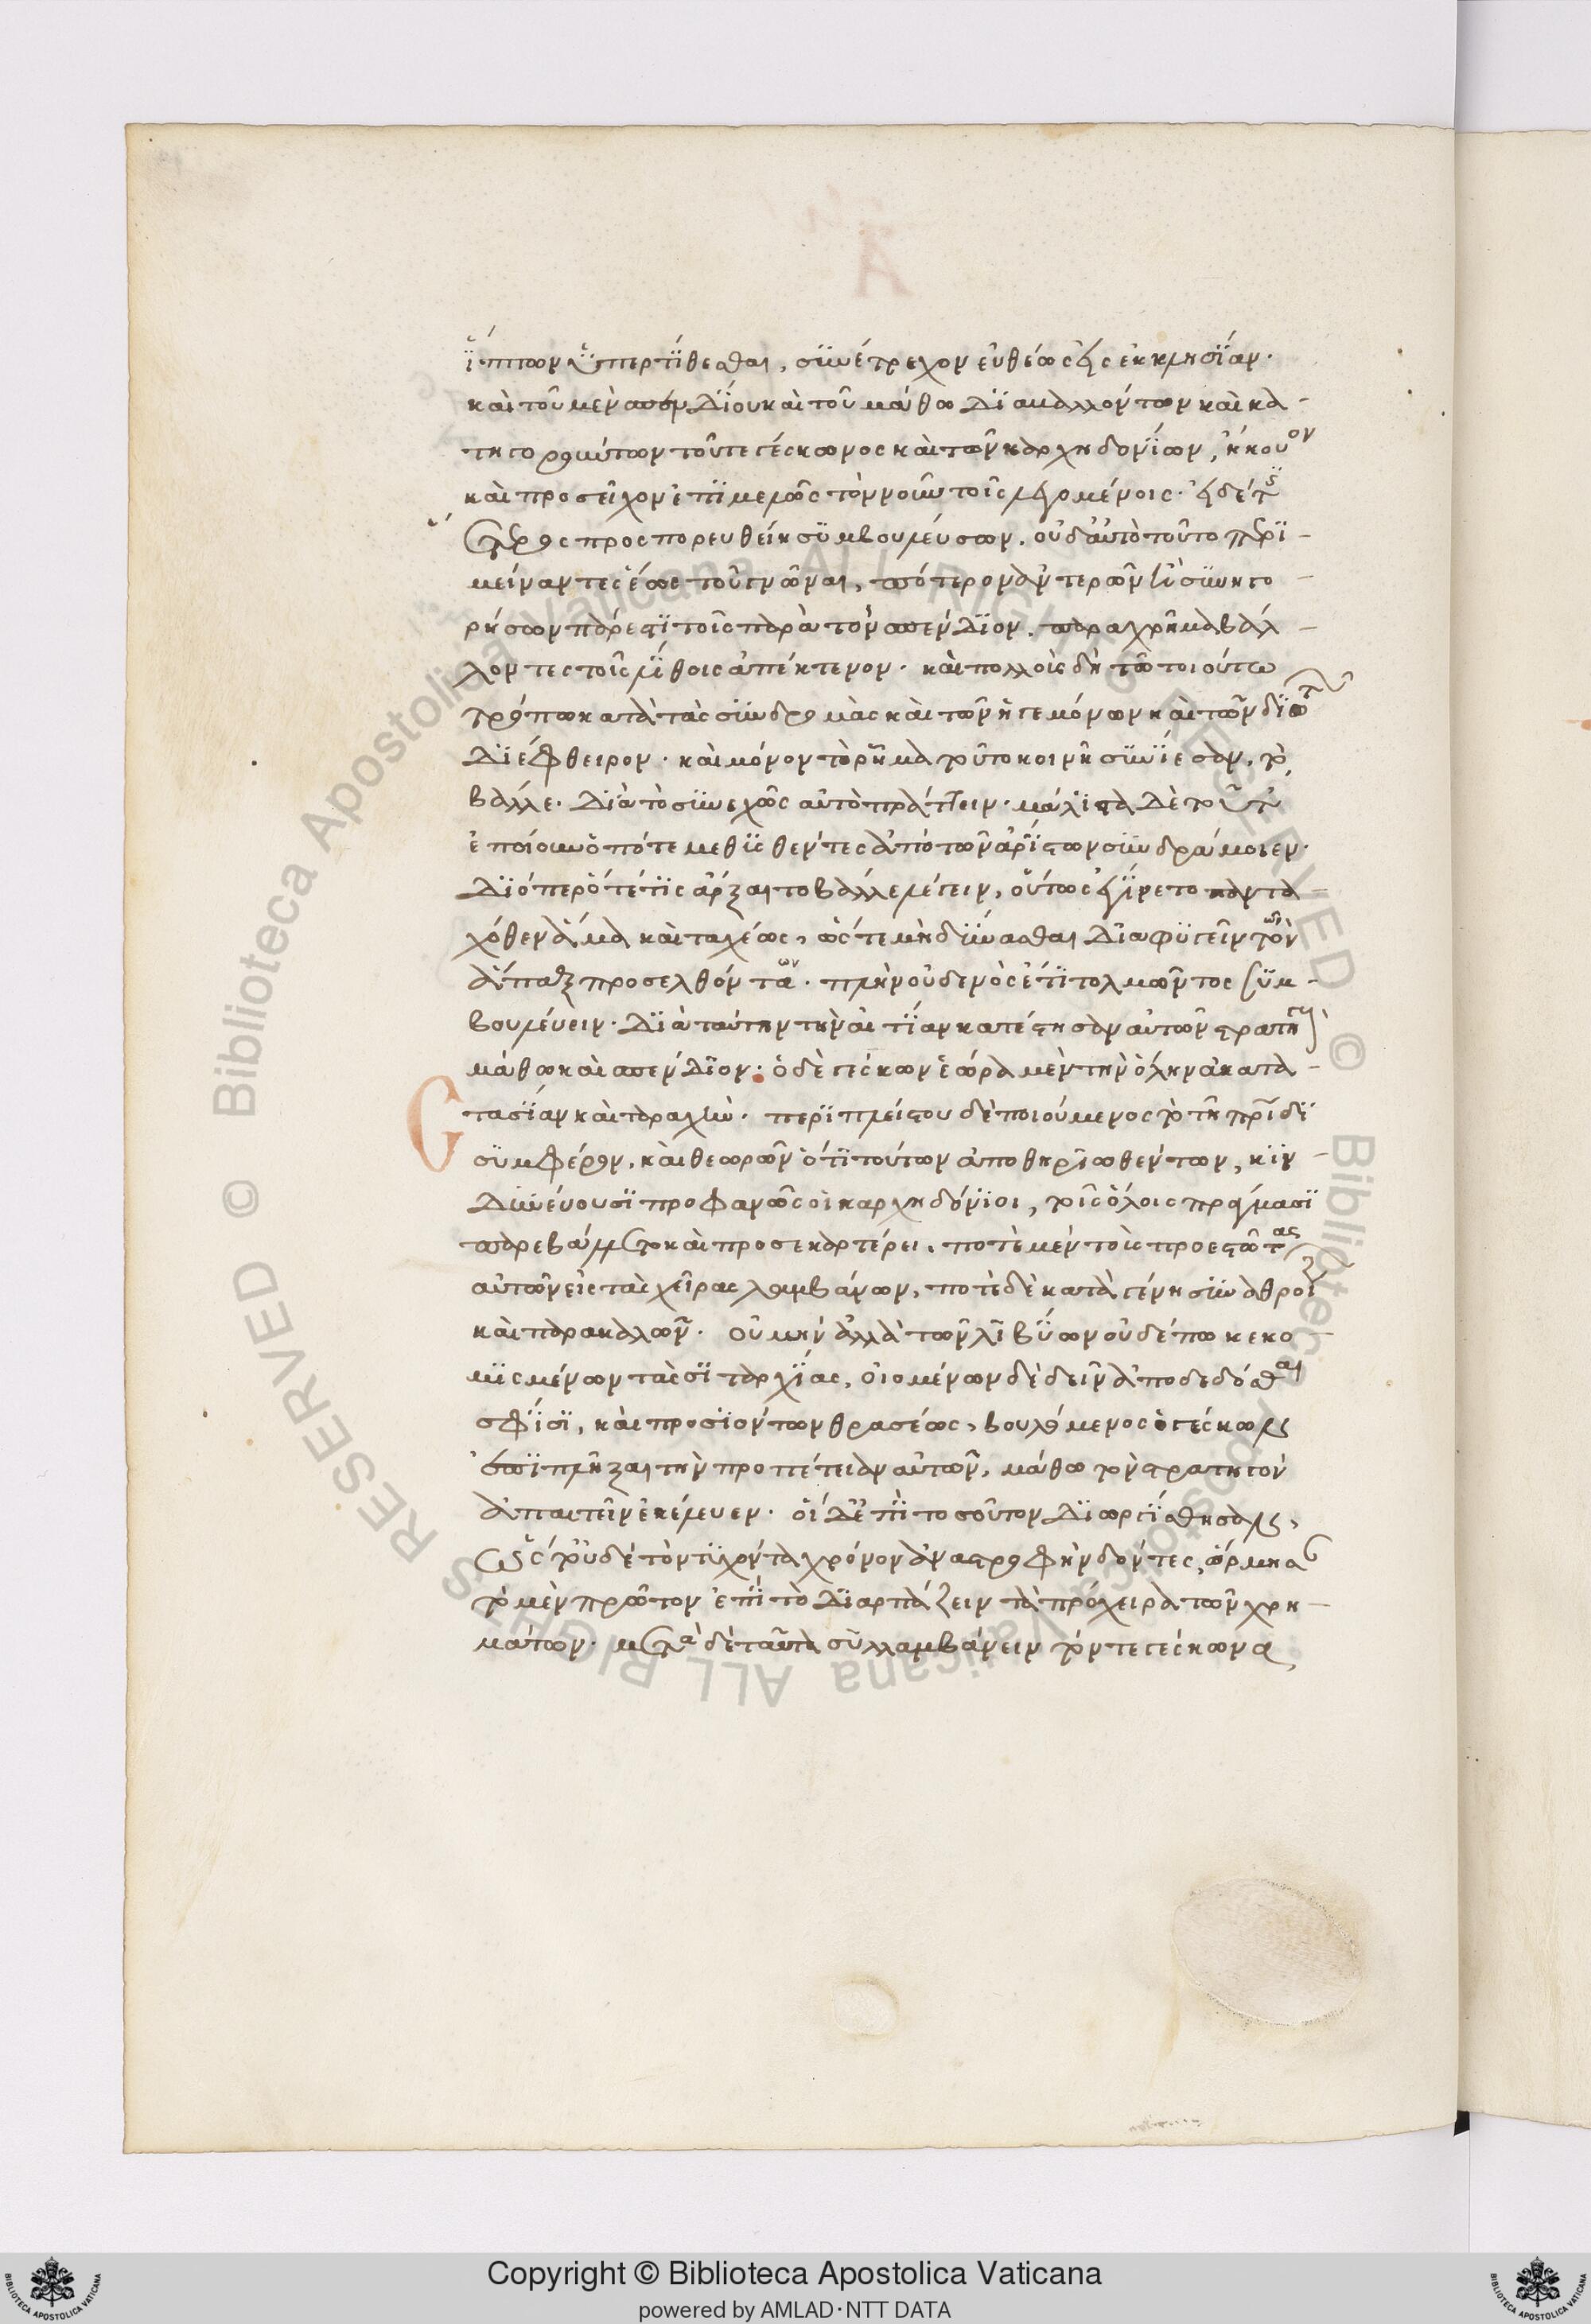 ἵππων ὑπερτίθεσθαι, συνέτρεχον εὐθέως εἰς ἐκκλησίαν·
καὶ τοῦ μὲν σπενδίου καὶ τοῦ μάθω διαβαλλόντων καὶ κα-
τηγορούντων τοῦ τε γέσκωνος καὶ τῶν καρχηδονίων, ἤκουον
καὶ προσεῖχον ἐπιμελῶς τὸν νοῦν τοῖς λεγομένοις· εἰ δέ τις
ἕτερος προσπορευθείη συμβουλεύσων. οὐδ' αὐτὸ τοῦτο περι-
μείναντες ἕως τοῦ γνῶναι, πότερον ἀντερῶν ἢ συνηγο-
ρήσων πάρεστι τοῖς παρὰ τὸν σπένδιον. παραχρῆμα βάλ-
λοντες τοῖς λίθοις ἀπέκτενον· καὶ πολλοὺς δὴ τῶ τοιούτω
τρόπω κατὰ τὰς συνδρομὰς καὶ τῶν ἡγεμόνων καὶ τῶν ἰδιωτῶν
διέφθειρον· καὶ μόνον τὸ ῥῆμα τοῦτο κοινῆ συνίεσαν, τὸ
βάλλε· διὰ τὸ συνεχῶς αὐτὸ πράττειν· μάλιστα δὲ τοῦτ'
ἐποίουν ὁπότε μεθυσθέντες ἀπὸ τῶν ἀρίστων συνδράμοιεν·
διόπερ ὅτε τὶς ἄρξαι το βάλλε λέγειν, οὕτως ἐγίνετο παντα-
χόθεν ἅμα καὶ ταχέως, ὥστε μὴ δύνασθαι διαφυγεῖν τῶν
ἅπαξ προσελθόντων· πλὴν οὐδενὸς ἔτι τολμῶντος συμ-
βουλεύειν· διὰ ταύτην τὴν αἰτίαν κατέστησαν αὐτῶν στρατηγοὺς
μάθω καὶ σπένδιον· ὁ δὲ γέσκων ἑώρα μὲν τὴν ὅλην ἀκατα-
στασίαν καὶ ταραχὴν· περὶ πλείστου δὲ ποιούμενος τὸ τῆ πατρίδι
συμφέρον, καὶ θεωρῶν ὅτι τούτων ἀποθηριωθέντων, κιν-
δυνεύουσι προφανῶς οἱ καρχηδόνιοι, τοῖς ὅλοις πράγμασι
παρεβάλλετο καὶ προσεκαρτέρει. ποτὲ μὲν τοὺς προεστῶτας
αὐτῶν εἰς τὰς χεῖρας λαμβάνων, ποτὲ δὲ κατὰ γένη συναθροίζων
καὶ παρακαλῶν· οὐ μὴν ἀλλὰ τῶν λιβύων οὐδέπω κεκο-
μισμένων τὰς σιταρχίας, οἰομένων δὲ δεῖν ἀποδεδόσθαι
σφίσι, καὶ προσιόντων θρασέως, βουλόμενος ὁ γέσκων
ἐπιπλῆξαι τὴν προπέτειαν αὐτῶν, μάθω τὸν στρατηγὸν
ἀπαιτεῖν ἐκέλευεν· οἱ δ' ἐπὶ τοσοῦτον διωργίσθησαν,
ὥστ' οὐδὲ τὸν τυχόντα χρόνον ἀναστροφὴν δόντες, ὥρμησαν
τὸ μὲν πρῶτον ἐπὶ τὸ διαρπάζειν τὰ πρόχειρα τῶν χρη-
μάτων· μετὰ δὲ ταῦτα συλλαμβάνειν τόν τε γέσκωνα
Copyright © Biblioteca Apostolica Vaticana
powered by AMLAD·NTT DATA